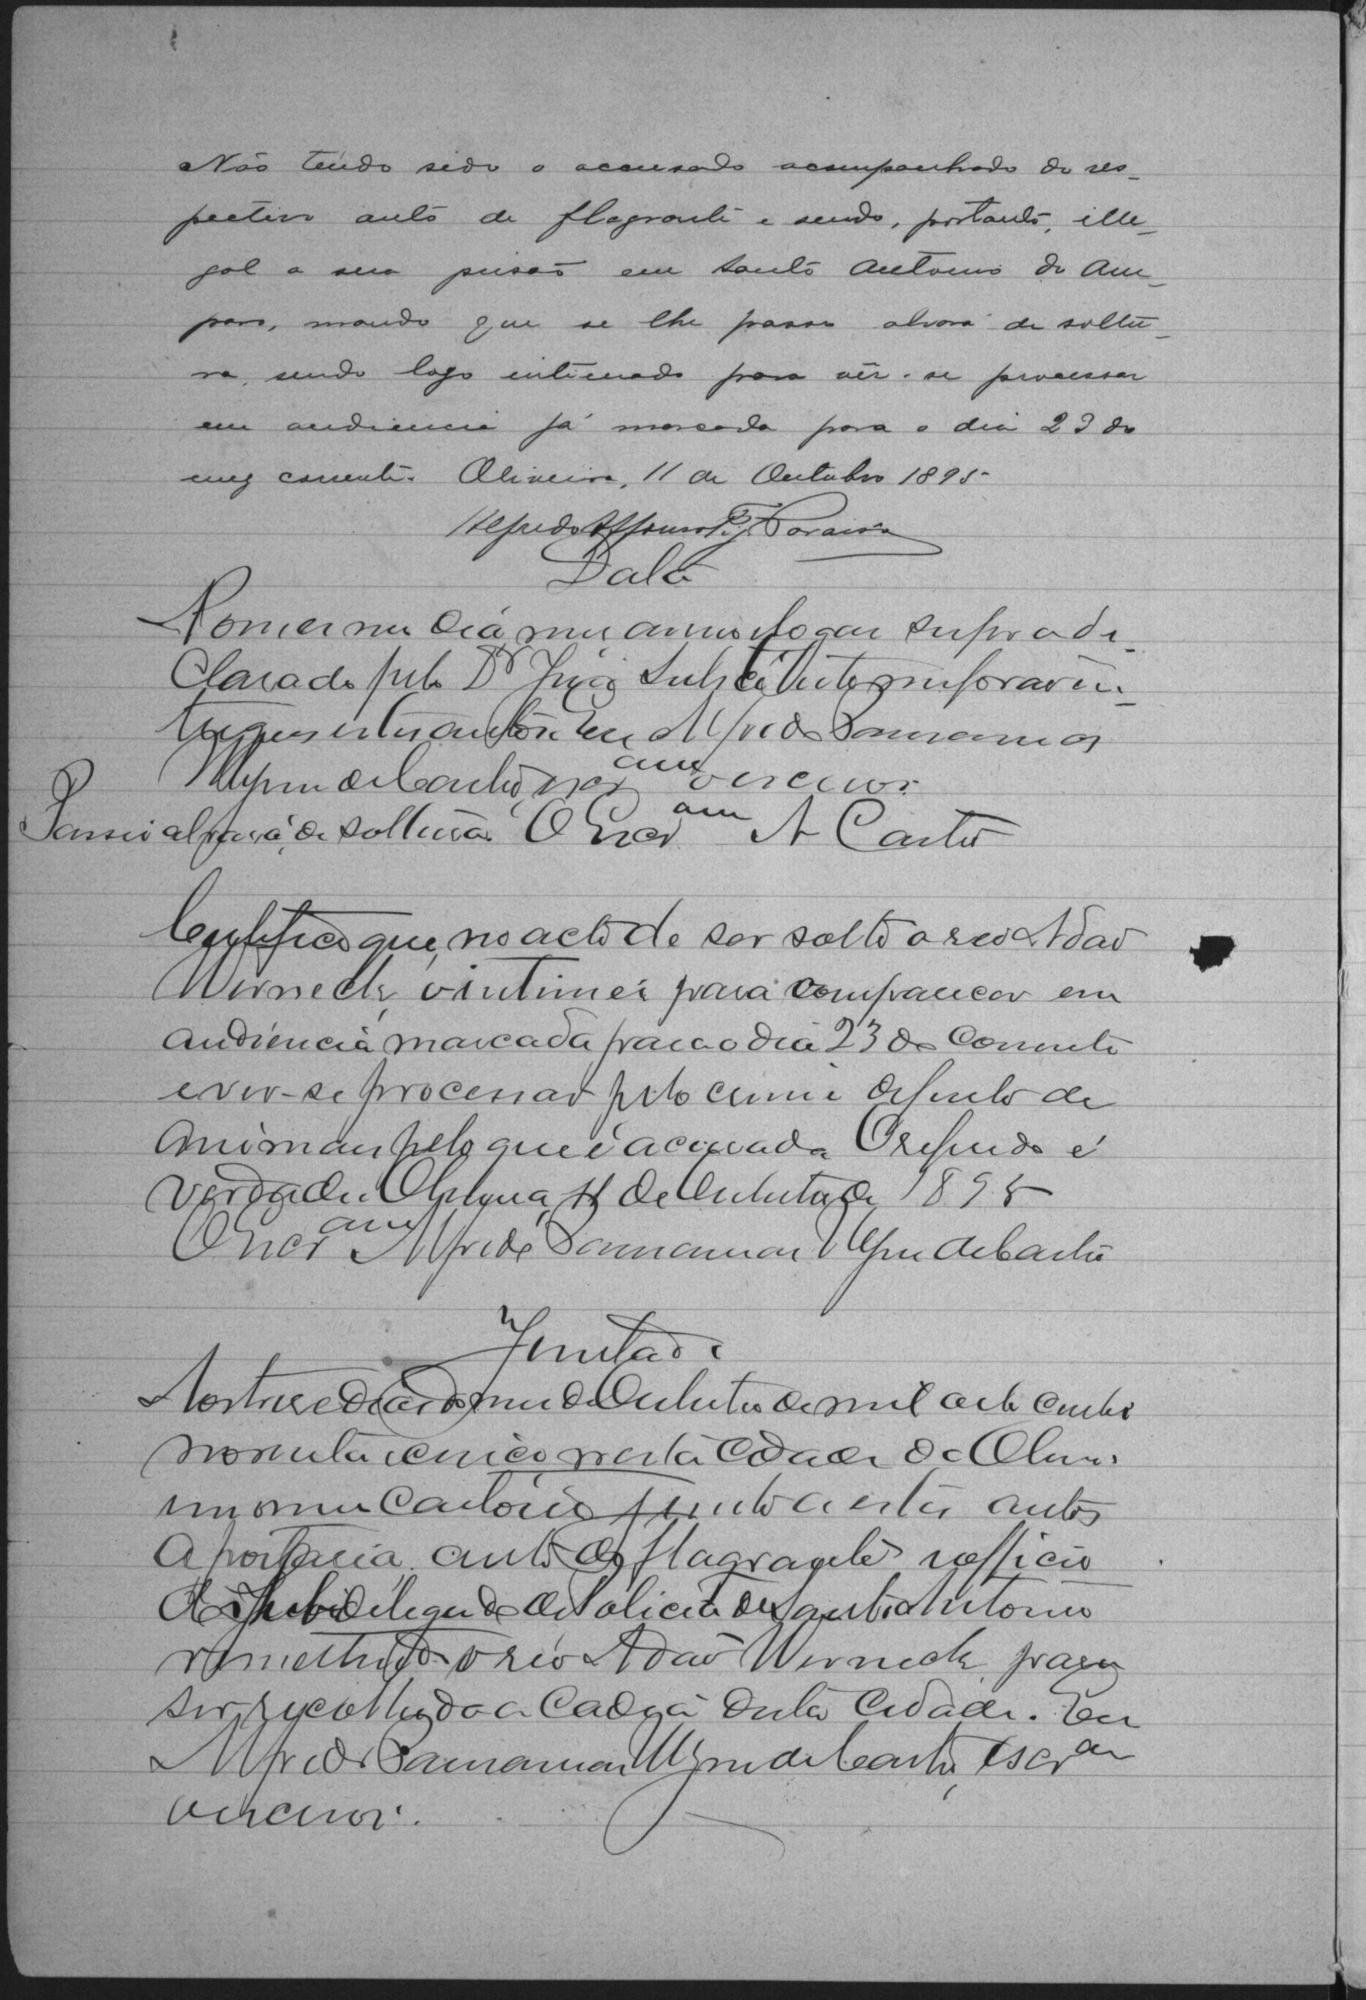 Não tendo sido o accusado acompanhado do res-
pectivo auto de flagrante e sendo, portanto, ille-
gal a sua prisão em Santo Antonio do Am-
paro, mando que se lhe passe alvará de soltu-
ra, sendo logo intimado para vêr-se processar
em audiencia já marcada para o dia 23 do
mez corrente. Oliveira, 11 de Outubro 1895
Alfredo Affonso
Data
No mesmo dia mez anno e logar supra de-
clarado pelo Dr Juiz Substituto me foram en-
tregues estes autos. Eu Alfredo
de Castro, escr am escrevi.
Passei alvará de soltura O Escr am A Castro
Certifico que, no acto de ser solto o reo Adão
Werneck, o intimei para comparecer em
audiencia marcada para o dia 23 do corrente
e ver-se processar pelo crime de furto de
animaes pelo que é accusado. O referido é
verdade. Oliveira, 11 de Outubro de 1895
O Escr am Alfredo de Castro
Juntada
Aos treze dias do mez de Outubro de mil oito centos
noventa e cinco nesta Cidade de Olivei-
em meu Cartorio junto a estes autos
a portaria, auto de flagrante e officio
do Subdelegado de Policia de Santo Antonio
remettendo o reo Adão Werneck para
ser recolhido a Cadeia desta Cidade. Eu
Alfredo de Castro, escr am
escrevi.